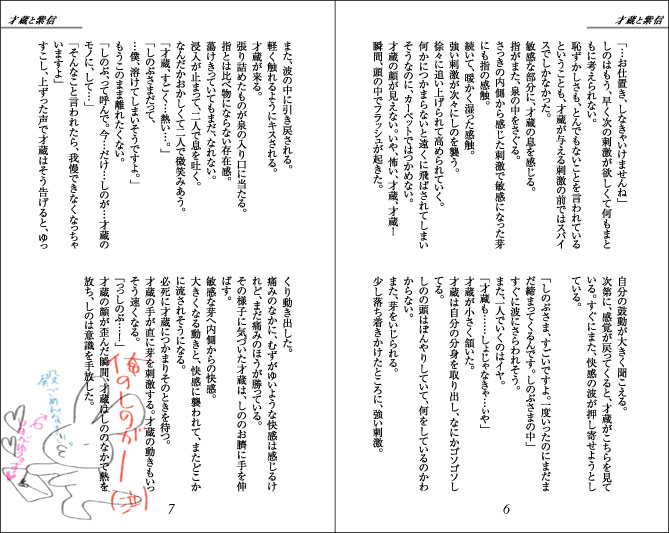 才蔵と紫信
「…お仕置き、しなきゃいけませんね」
しのはもう、早く次の刺激が欲しくて何もまと
もに考えられない。
恥ずかしさも、とんでもないことを言われている
ということも、才蔵が与える刺激の前ではスパイ
スでしかなかった。
敏感な部分に、才蔵の息を感じる。
指がまた、泉の中をさぐる。
さっきの内側から感じた刺激で敏感になった芽
にも指の感触。
続いて、暖かく湿った感触。
強い刺激が次々にしのを襲う。
徐々に追い上げられて高められていく。
何かにつかまらないと遠くに飛ばされてしまい
そうなのに、カーペットではつかめない。
才蔵の顔が見えない。いや、怖い、才蔵、才蔵ー
瞬間、頭の中でフラッシュが起きた。
自分の鼓動が大きく聞こえる。
次第に、感覚が戻ってくると、才蔵がこちらを見て
いる。すぐにまた、快感の波が押し寄せようとし
ている。
「しのぶさま、すごいですよ。一度いったのにまだま
だ締まってくるんです。しのぶさまの中」
すぐに波にさらわれそう。
また、一人でいくのはイヤ。
「才蔵も……しょじゃなきゃ…いや」
才蔵が小さく頷いた。
才蔵は自分の分身を取り出し、なにかゴソゴソし
てる。
しのの頭はぼんやりしていて、何をしているのかわ
からない。
また、芽をいじられる。
少し落ち着きかけたところに、強い刺激。
6
才蔵と紫信
また、波の中に引き戻される。
軽く触れるようにキスされる。
才蔵が来る。
張り詰めたものが泉の入り口に当たる。
指とは比べ物にならない存在感。
蕩けきっていてもまだ、なれない。
浸入が止まって、二人で息を吐く。
なんだかおかしくて二人で微笑みあう。
「才蔵、すごく…熱い…。」
「しのぶさまだって。
…僕、溶けてしまいそうですよ。」
もうこのまま離れたくない。
「しのぶ、って呼んで。今…だけ…しのが…才蔵の
モノに、して…」
「そんなこと言われたら、我慢できなくなっちゃ
いますよ」
すこし、上ずった声で才蔵はそう告げると、ゆっ
くり動き出した。
痛みのなかに、むずがゆいような快感は感じるけ
れど、まだ痛みのほうが勝っている。
その様子に気づいた才蔵は、しののお臍に手を伸
ばす。
敏感な芽へ内側からの快感。
大きくなる動きと、快感に襲われて、またどこか
に流されそうになる。
必死に才蔵につかまりそのときを待つ。
才蔵の手が直に芽を刺激する。才蔵の動きもいっ
そう速くなる。
「っっしのぶ……！」
才蔵の顔が歪んだ瞬間、才蔵はしののなかで熱を
放ち、しのは意識を手放した。
7
俺のしのがー
(泣)